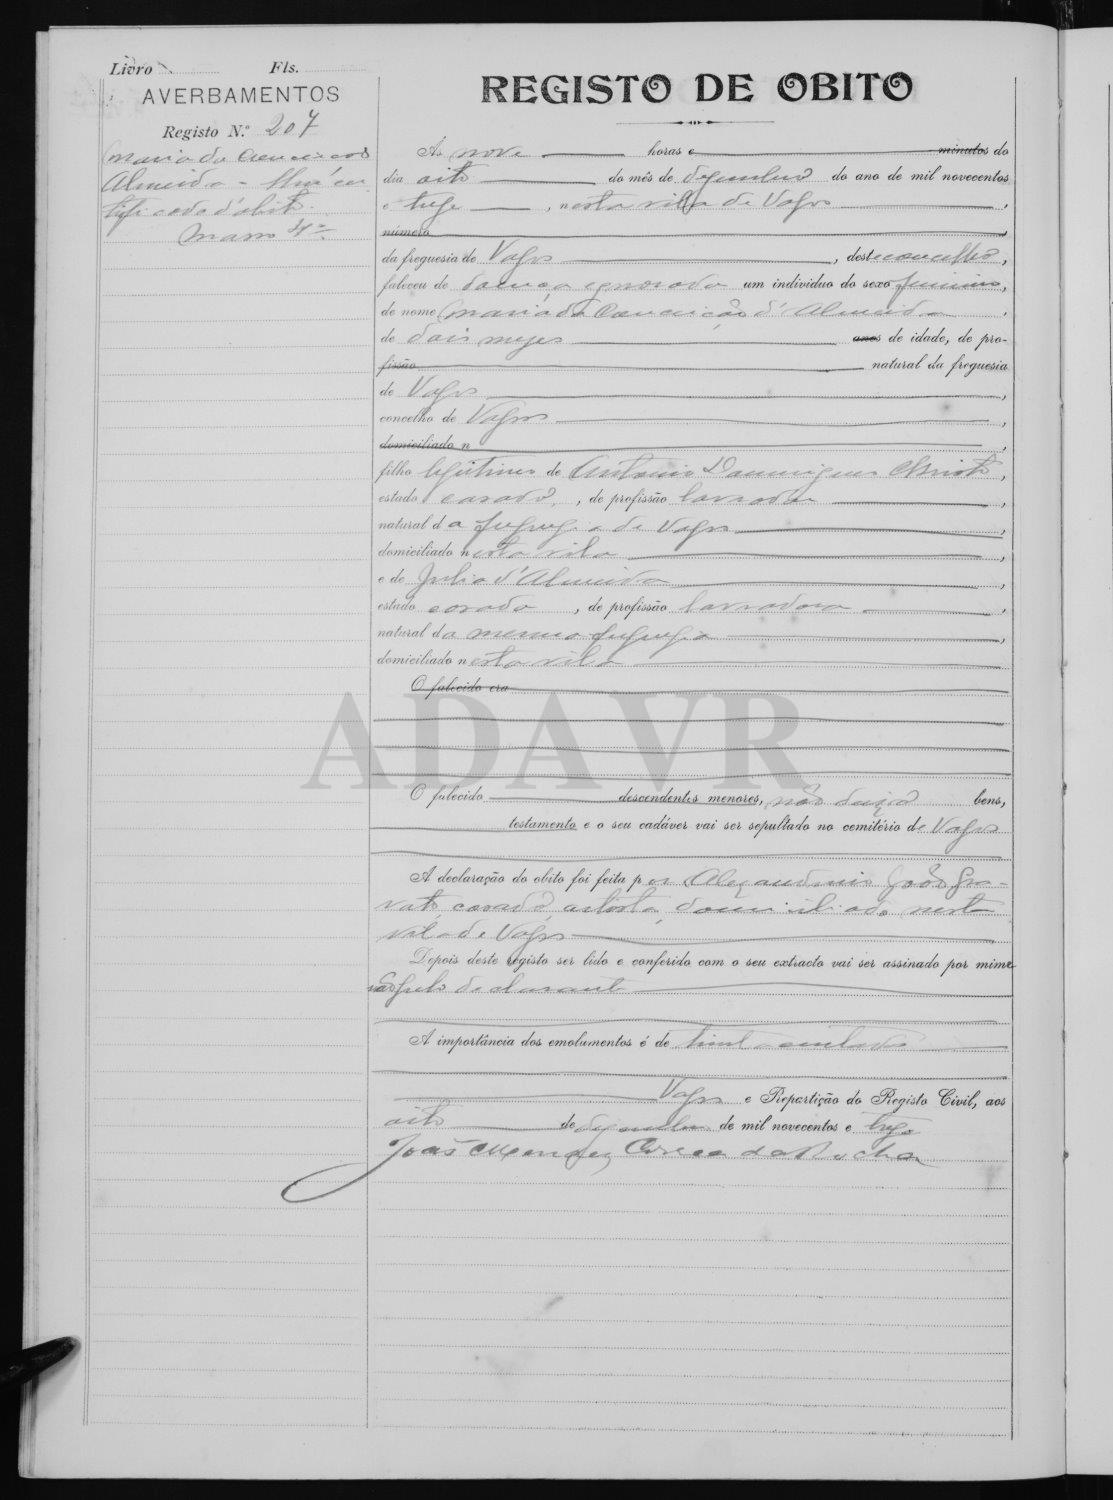 Livro Fls.
AVERBAMENTOS
Registo N.º 207
Maria da Conceição
Almeida -
d'obito.
Maço 4º
REGISTO DE OBITO
Ás nove horas e minutos do
dia oito do mês de dezembro do ano de mil novecentos
e treze, nesta vila de Vagos,
número
da freguesia de Vagos, deste concelho,
faleceu de doença ignorada um individuo do sexo feminino,
de nome Maria da Conceição d'Almeida,
de dois mezes anos de idade, de pro-
fissão natural da freguesia
de Vagos,
concelho de Vagos,
domiciliado n,
filho legitimo de Antonio Domingues Christo,
estado casado, de profissão lavrador,
natural da freguezia de Vagos,
domiciliado nesta vila,
e de Julia d'Almeida,
estado casada, de profissão lavradora,
natural da mesma freguezia,
domiciliado nesta vila
O falecido era
ADAVR
O falecido descendentes menores, não deixa bens,
testamento e o seu cadáver vai ser sepultado no cemitério de Vagos
A declaração do obito foi feita por Alexandrino João Gra-
vato, casado, artista, domiciliado nesta
vila de Vagos
Depois deste registo ser lido e conferido com o seu extracto vai ser assinado por mim e
não pelo declarante
A importância dos emolumentos é de trinta centavos
Vagos e Repartição do Registo Civil, aos
oito de dezembro de mil novecentos e treze
João Mendes Correa da Rocha